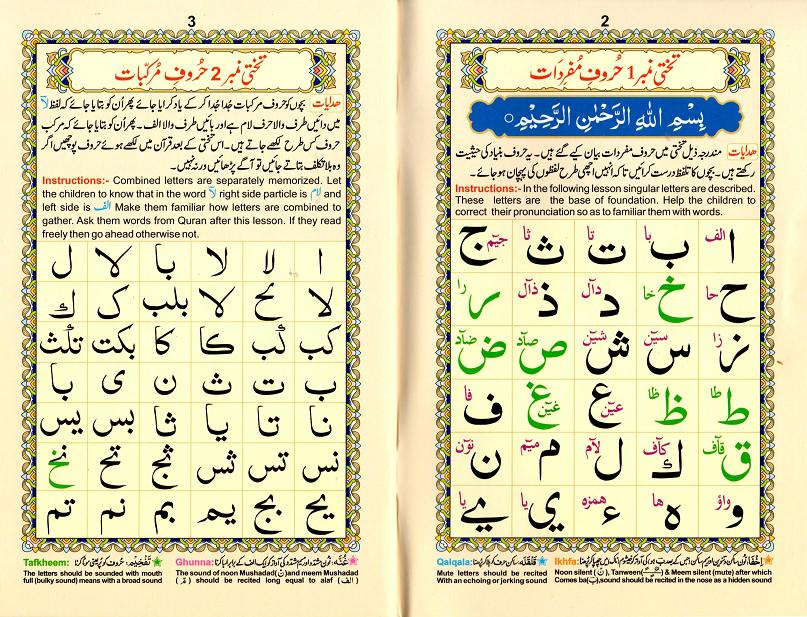 2
تختی نمبر 1 حُروفِ مُفردَات
بِسْمِ اللهِ الرَّحْمٰنِ الرَّحِيْمِ
ھدایات مندرجہ ذیل تختی میں حروف مفردات بیان کیے گئے ہیں۔ یہ حروف بنیاد کی حیثیت
رکھتے ہیں۔ بچوں کا تلفظ درست کرائیں تاکہ انہیں اچھی طرح لفظوں کی پہچان ہو جائے۔
Instructions:- In the following lesson singular letters are described.
These letters are the base of foundation. Help the children to
correct their pronunciation so as to familiar them with words.
ا الف ب با ت تا ث ثا ج جیم
ح حا خ خا د دال ذ ذال ر را
ز زا س سین ش شین ص صاد ض ضاد
ط طا ظ ظا ع عین غ غین ف فا
ق قاف ك کاف ل لام م میم ن نون
و واؤ ہ ھا ء ھمزہ ی یا ے یا
Ikhfa:
Noon silent (نْ), Tanween & Meem silent (mute) after which
Comes ba(ب),sound should be recited in the nose as a hidden sound
Qalqala: قَلْقَلَه:
Mute letters should be recited
With an echoing or jerking sound
3
تختی نمبر 2 حُروفِ مُرکّبات
ھدایات بچوں کو حروف مرکبات جُدا جُدا کر کے یاد کرایا جائے پھر اُن کو بتایا جائے کہ لفظ لا
میں دائیں طرف والا حرف لام ہے اور بائیں طرف والا الف۔ پھر اُن کو بتایا جائے کہ مرکب
حروف کس طرح لکھے جاتے ہیں۔ اس تختی کے بعد قرآن میں لکھے ہوئے حروف پوچھیں اگر
وہ بلا تکلف بتاتے جائیں تو آگے پڑھائیں ورنہ نہیں۔
Instructions:- Combined letters are separately memorized. Let
the children to know that in the word لا right side particle is لام and
left side is الف Make them familiar how letters are combined to
gather. Ask them words from Quran after this lesson. If they read
freely then go ahead otherwise not.
ا لا لا با لا ل
لا لا بلب ک ك
کب لب کا کا بکت تلث
ب ت ث ن ی با
نا تا یا ثا بس یس
نس تس ثس ثج تح نخ
یح بج یم بم نم تم
Ghunna: غُنَّه:
The sound of noon Mushadad(نّ)and meem Mushadad
(مّ) should be recited long equal to alaf (الف)
Tafkheem: تَفْخِيْم:
The letters should be sounded with mouth
full (bulky sound) means with a broad sound